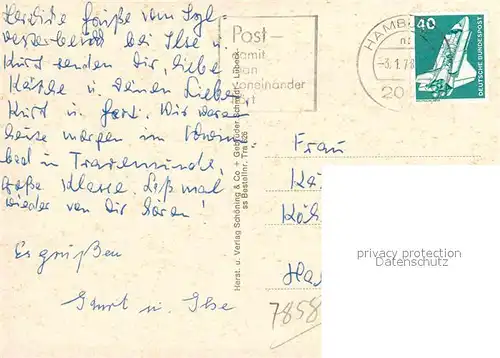 Herzliche Grüße vom
bei Ilse u.
Kurt senden Dir, liebe
Käthe u. Deinen Lieben
Kurt u. Wir waren
heute morgen im
bad in Travemünde,
große Klasse. Laß mal
wieder von Dir hören!
Es grüßen
u. Ilse
Post—
damit
man
voneinander
HAMBURG
-3.1.7
20
40
DEUTSCHE BUNDESPOST
Herst. u. Verlag Schöning & Co + Gebrüder Schmidt - Lübeck
ss Bestellnr. Tra 626
Frau
Kä
Köh
Ha
7858
privacy protection
Datenschutz